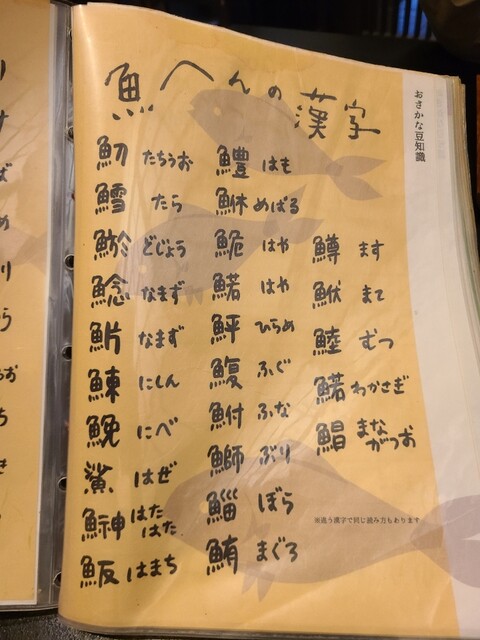 魚へんの漢字
おさかな豆知識
魛 たちうお
鱈 たら
鯲 どじょう
鯰 なまず
魸 なまず
鰊 にしん
鮸 にべ
鯊 はぜ
鰰 はたはた
魬 はまち
鱧 はも
鮴 めばる
鮠 はや
鰙 はや
鮃 ひらめ
鰒 ふぐ
鮒 ふな
鰤 ぶり
鯔 ぼら
鮪 まぐろ
鱒 ます
鮲 まて
鯥 むつ
鰙 わかさぎ
鯧 まながつお
※違う漢字で同じ読み方もあります